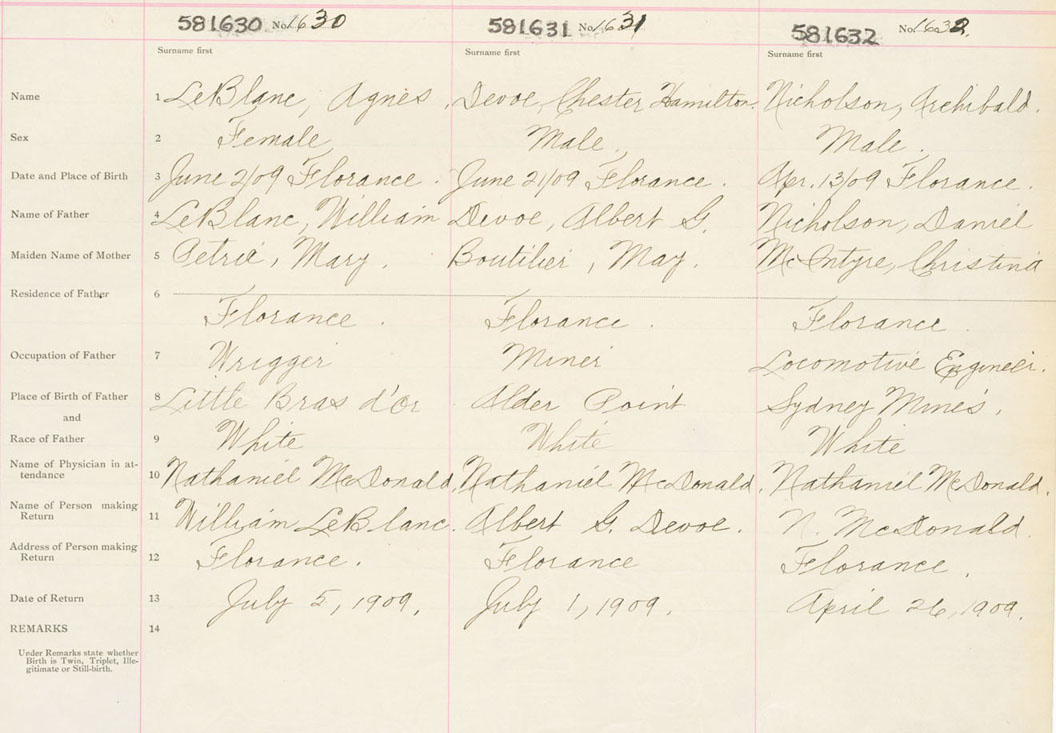 581630 No. 1630 581631 No. 1631 581632 No. 1632.
Surname first Surname first Surname first
Name 1 LeBlanc, Agnes. Devoe, Chester Hamilton. Nicholson, Archibald.
Sex 2 Female, Male, Male.
Date and Place of Birth 3 June 2/09 Florance. June 21/09 Florance. Apr. 13/09 Florance.
Name of Father 4 LeBlanc, William Devoe, Albert G. Nicholson, Daniel
Maiden Name of Mother 5 Petrie, Mary. Boutilier, May. McIntyre, Christina
Residence of Father 6
Florance. Florance. Florance.
Occupation of Father 7 Wrigger Miner Locomotive Engineer.
Place of Birth of Father 8 Little Bras d'Or Alder Point Sydney Mines.
and
Race of Father 9 White White White
Name of Physician in at-
tendance 10 Nathaniel McDonald. Nathaniel McDonald. Nathaniel McDonald.
Name of Person making
Return 11 William LeBlanc. Albert G. Devoe. N. McDonald.
Address of Person making
Return 12 Florance. Florance Florance.
Date of Return 13 July 5, 1909. July 1, 1909. April 26, 1909.
REMARKS 14
Under Remarks state whether
Birth is Twin, Triplet, Ille-
gitimate or Still-birth.